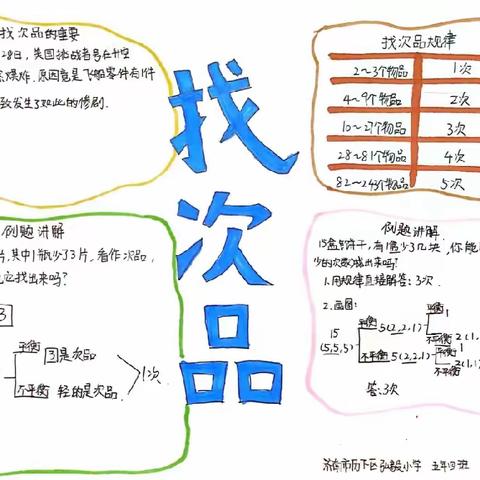 找次品的重要
28日,美国挑战者号在升空
爆炸,原因竟是飞船零件有1件
致发生了如此的惨剧.
找次品
找次品规律
2～3个物品 1次
4～9个物品 2次
10～27个物品 3次
28～81个物品 4次
82～243个物品 5次
例题讲解
片,其中1瓶少了3片,看作次品,
它找出来吗?
3
平衡 ③是次品
不平衡 轻的是次品
1次
例题讲解
15盒饼干,有1盒少了几块,你能
少的次数找出来吗?
1.用规律直接解答:3次.
2.画图:
15
(5,5,5)
平衡 5(2,2,1) 平衡 1
不平衡 2(1,
不平衡 5(2,2,1) 平衡 1
不平衡 2(1,1
答:3次
济南市历下区弘毅小学 五年四班